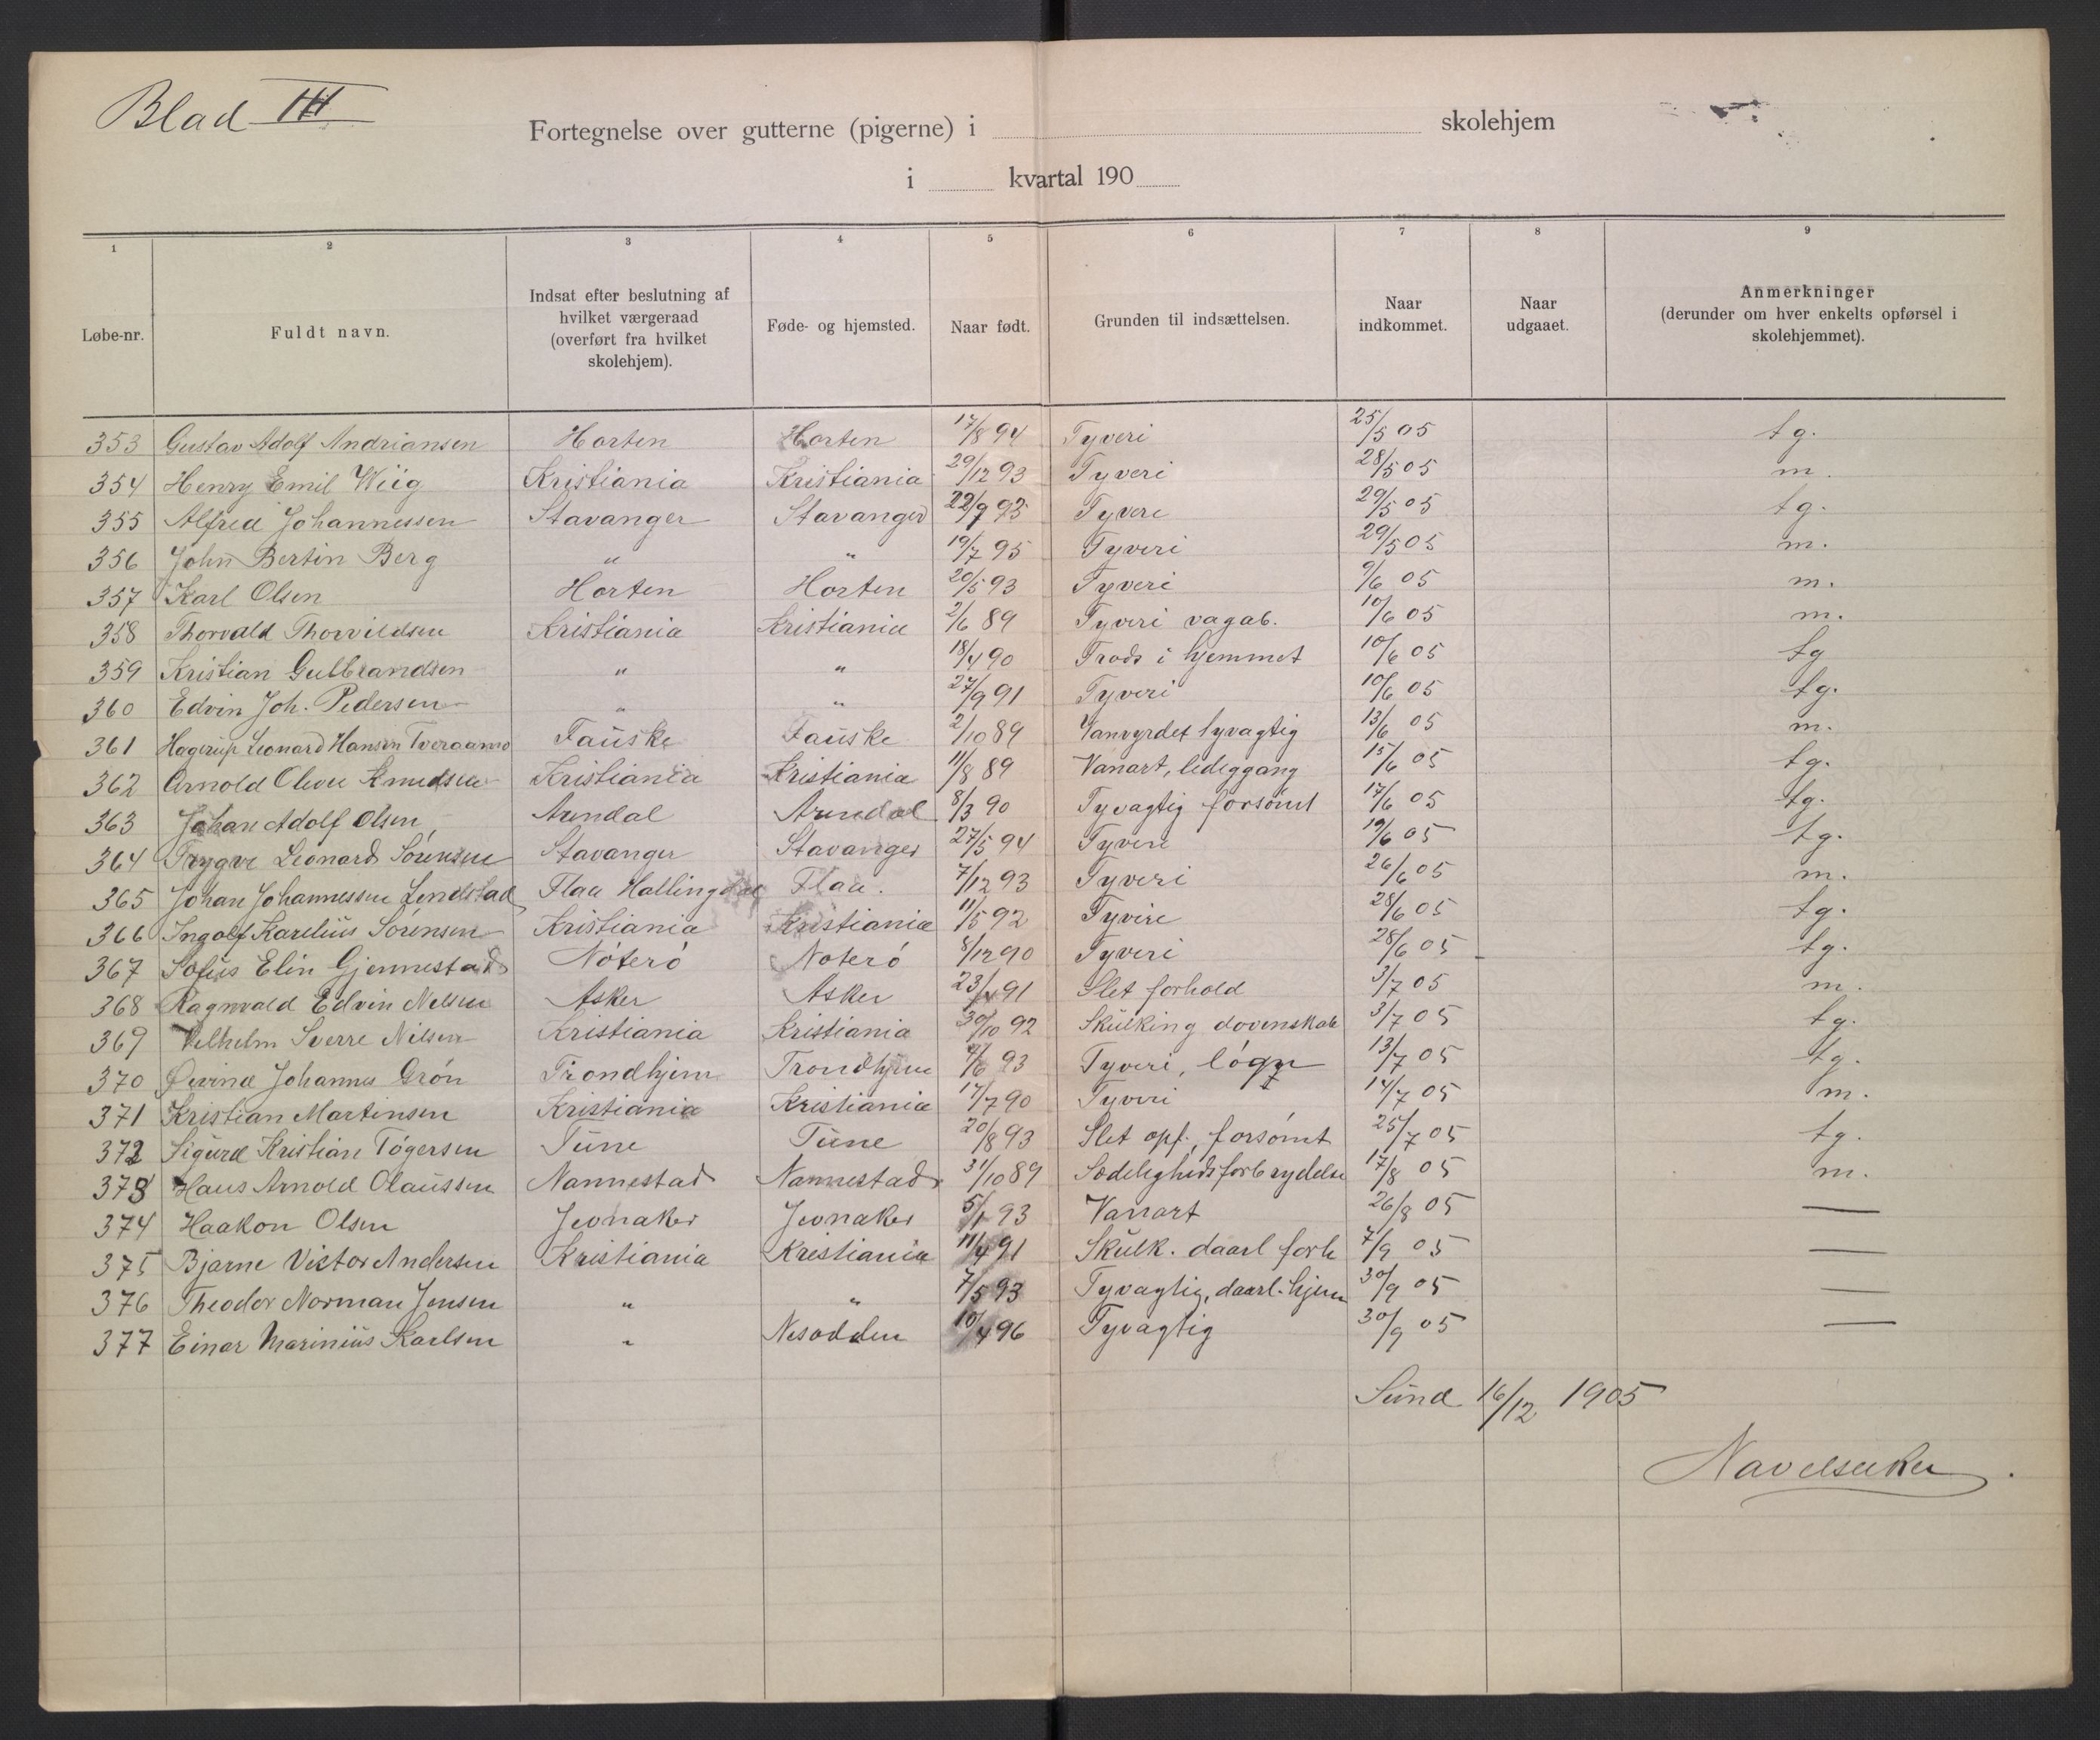 Blad III
Fortegnelse over gutterne (pigerne) i skolehjem
i kvartal 190
1 2 3 4 5 6 7 8 9
Løbe-nr. Fuldt navn. Indsat efter beslutning af hvilket værgeraad (overført fra hvilket skolehjem). Føde- og hjemsted. Naar født. Grunden til indsættelsen. Naar indkommet. Naar udgaaet. Anmerkninger (derunder om hver enkelts opførsel i skolehjemmet).
353 Gustav Adolf Andriansen Horten Horten 17/8 94 Tyveri 25/5 05 tg.
354 Henry Emil Wiig Kristiania Kristiania 29/12 93 Tyveri 28/5 05 m.
355 Alfred Johannessen Stavanger Stavanger 22/9 93 Tyveri 29/5 05 tg.
356 John Bertin Berg " " 19/7 95 Tyveri 29/5 05 m.
357 Karl Olsen Horten Horten 20/5 93 Tyveri 9/6 05 m.
358 Thorvald Thorvildsen Kristiania Kristiania 2/6 89 Tyveri vagab. 10/6 05 m.
359 Kristian Gulbrandsen " " 18/4 90 Trods i hjemmet 10/6 05 tg
360 Edvin Joh. Pedersen " " 27/9 91 Tyveri 10/6 05 tg.
361 Hagerup Leonard Hansen Tveraamo Fauske Fauske 2/10 89 Vanvyrdet tyvagtig 13/6 05 m.
362 Arnold Oliver Knudsen Kristiania Kristiania 11/8 89 Vanart, lediggang 15/6 05 tg.
363 Johan Adolf Olsen Arendal Arendal 8/3 90 Tyvagtig forsømt 17/6 05 tg.
364 Trygve Leonard Sórensen Stavanger Stavanger 27/5 94 Tyveri 19/6 05 tg.
365 Johan Johannessen Lindstad Flaa Hallingdal Flaa. 7/12 93 Tyveri 26/6 05 m.
366 Ingolf Karelius Sórensen Kristiania Kristiania 11/5 92 Tyveri 28/6 05 tg.
367 Sofus Elin Gjennestad Nóteró Noteró 8/12 90 Tyveri 28/6 05 tg.
368 Ragnvald Edvin Nelsen Asker Asker 23/4 91 Slet forhold 3/7 05 m.
369 Vilhelm Sverre Nilsen Kristiania Kristiania 30/10 92 Skulking dovenskab 3/7 05 tg.
370 Øivind Johannes Grón Trondhjem Trondhjem /6 93 Tyveri, lógn 13/7 05 tg.
371 Kristian Martinsen Kristiania Kristiania 17/7 90 Tyveri 14/7 05 m.
372 Sigurd Kristian Tógersen Tune Tune 20/8 93 Slet opf., forsómt 25/7 05 tg.
373 Hans Arnold Olaussen Nannestad Nannestad 31/10 89 Sædelighedsforbrydelse 17/8 05 m.
374 Haakon Olsen Jevnaker Jevnaker 5/1 93 Vanart 26/8 05 —
375 Bjarne Victor Andersen Kristiania Kristiania 11/4 91 Skulk. daarl forh 7/9 05 —
376 Theodor Norman Jensen " " 7/5 93 Tyvagtig, daarl. hjem 30/9 05 —
377 Einar Marinius Karlsen " Nesodden 10/4 96 Tyvagtig 30/9 05 —
Sund 16/12 1905
Navelsaker.